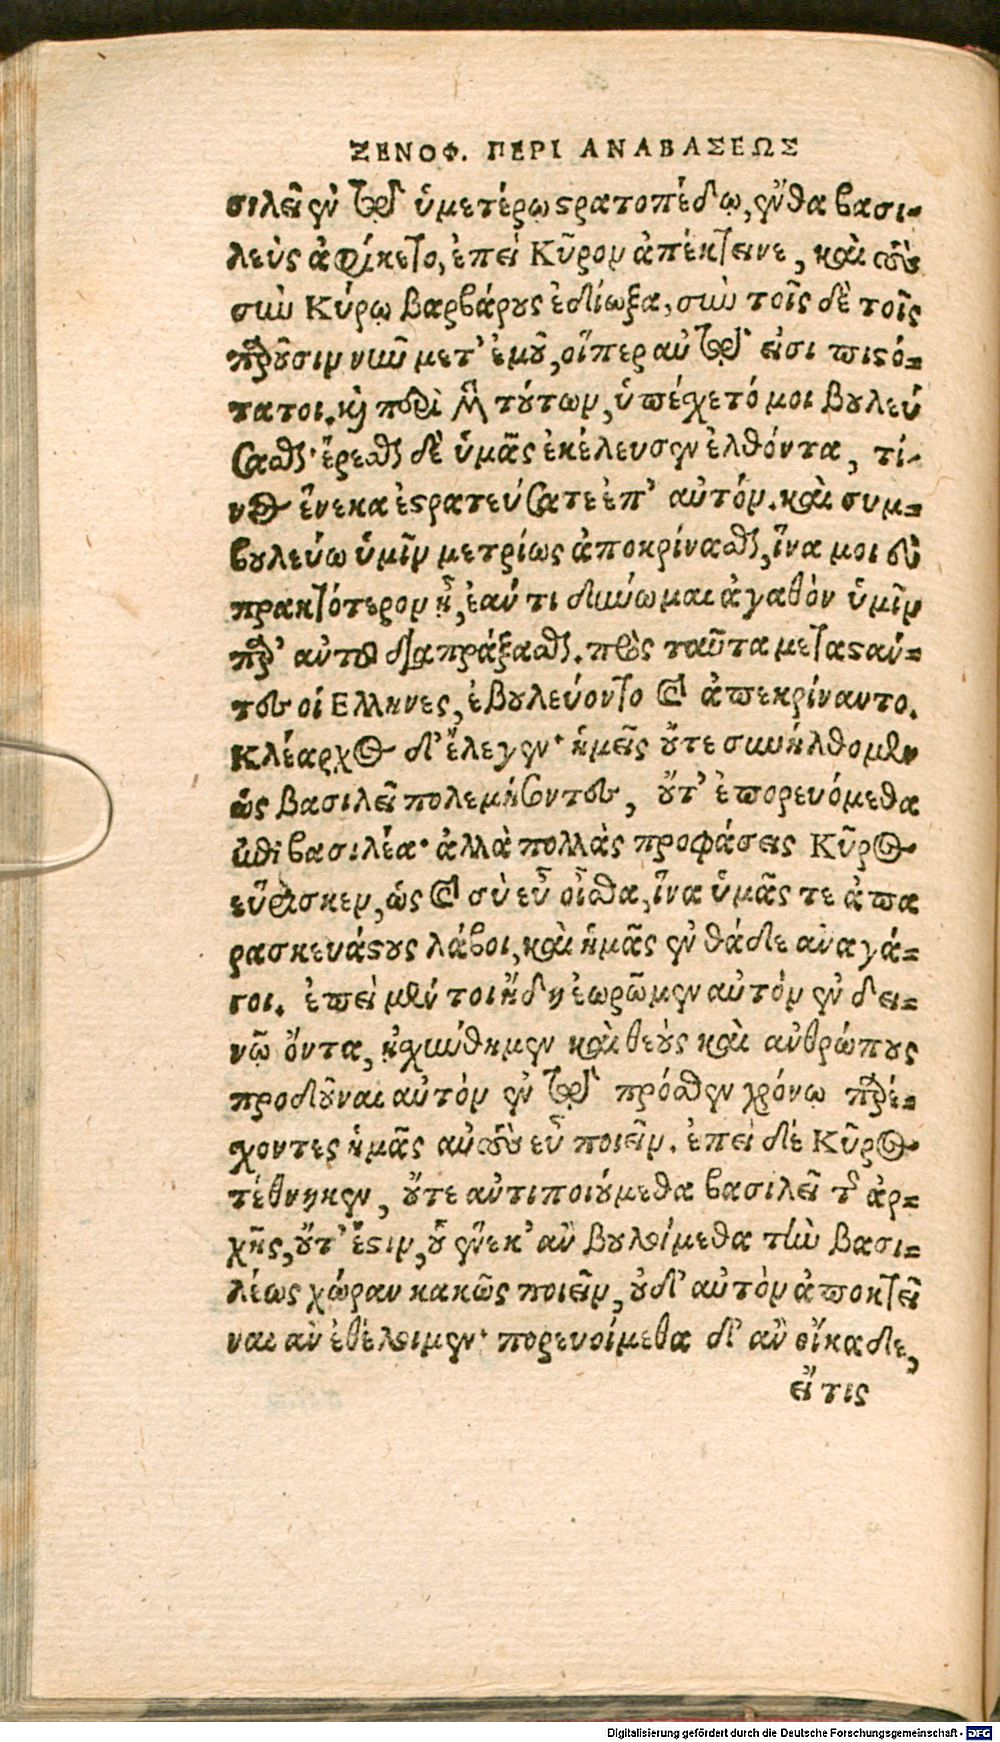 ΞΕΝΟΦ. ΠΕΡΙ ΑΝΑΒΑΣΕΩΣ
σιλεῖ ἐν τῷ ὑμετέρῳ ϛρατοπέδῳ, ἔνθα βασι-
λεὺς ἀφίκετο, ἐπεὶ Κῦρον ἀπέκτεινε, καὶ τοὺς
σὺν Κύρῳ βαρβάρους ἐδίωξα, σὺν τοῖς δὲ τοῖς
παροῦσιν νῦν μετ' ἐμοῦ, οἵπερ αὐτῷ εἰσι πιϛό-
τατοι. καὶ περὶ μὲν τούτων, ὑπέσχετό μοι βουλεύ
σασθαι· ἔρεσθαι δὲ ὑμᾶς ἐκέλευσεν ἐλθόντα, τί-
νος ἕνεκα ἐϛρατεύσατε ἐπ' αὐτόν. καὶ συμ-
βουλεύω ὑμῖν μετρίως ἀποκρίνασθαι, ἵνα μοι εὐ
πρακτότερον ᾖ, ἐάν τι δύνωμαι ἀγαθὸν ὑμῖν
παρ' αὐτοῦ διαπράξασθαι. πρὸς ταῦτα μεταϛάν-
τες οἱ Ελληνες, ἐβουλεύοντο καὶ ἀπεκρίναντο.
Κλέαρχος δ' ἔλεγεν· ἡμεῖς οὔτε συνήλθομεν
ὡς βασιλεῖ πολεμήσοντες, οὔτ' ἐπορευόμεθα
ἐπὶ βασιλέα· ἀλλὰ πολλὰς προφάσεις Κῦρος
εὕρισκεν, ὡς καὶ σὺ εὖ οἶσθα, ἵνα ὑμᾶς τε ἀπα
ρασκευάϛους λάβοι, καὶ ἡμᾶς ἐνθάδε αναγά-
γοι. ἐπεὶ μέν τοι ἤδη ἑωρῶμεν αὐτὸν ἐν δει-
νῷ ὄντα, ᾐσχύνθημεν καὶ θεοὺς καὶ ἀνθρώπους
προδοῦναι αὐτὸν ἐν τῷ πρόσθεν χρόνῳ παρέ-
χοντες ἡμᾶς αὐτοὺς εὖ ποιεῖν. ἐπεὶ δὲ Κῦρος
τέθνηκεν, οὔτε ἀντιποιούμεθα βασιλεῖ τῆς ἀρ-
χῆς, οὔτ' ἔϛιν, οὗ ἕνεκ' ἂν βουλοίμεθα τὴν βασι-
λέως χώραν κακῶς ποιεῖν, οὐδ' αὐτὸν ἀποκτεῖ
ναι ἂν ἐθέλοιμεν· πορευοίμεθα δ' ἂν οἴκαδε,
εἴ τις
Digitalisierung gefördert durch die Deutsche Forschungsgemeinschaft - DFG